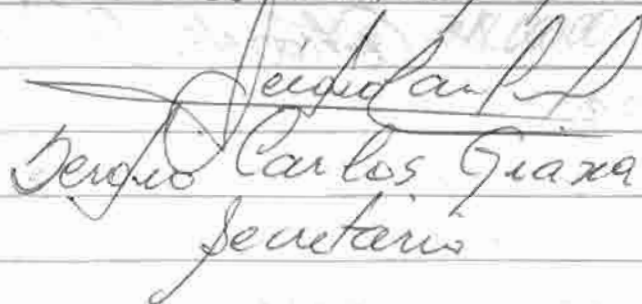 Sergio Carlos Giaxa
Secretário